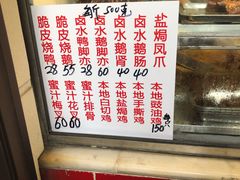 每斤 500克
脆皮烧鸭
28
脆皮烧鹅
55
卤水鸭脚亦
38
卤水鹅脚亦
60
卤水鹅肾
40
卤水鹅肠
40
盐焗凤爪
蜜汁梅叉
60
蜜汁花叉
60
蜜汁排骨
本地白切鸡
本地盐焗鸡
本地手撕鸡
本地豉油鸡
150